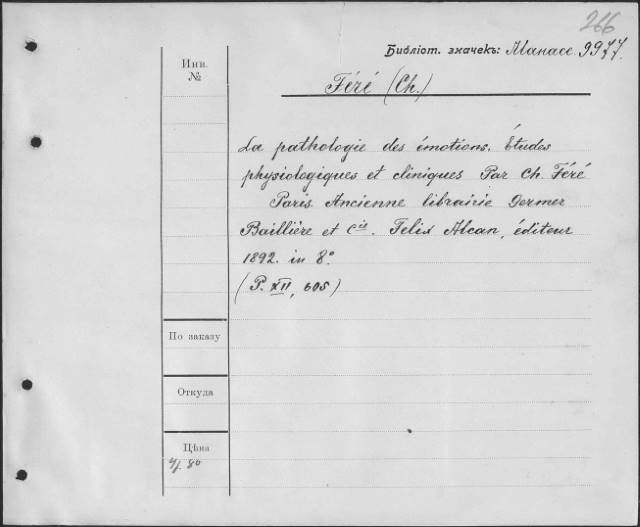 266
Библіот. значекъ: Манасс. 9977.
Инв.
№
Féré (Ch.)
La pathologie des émotions. Études
physiologiques et cliniques Par Ch. Féré
Paris Ancienne librairie Germer
Baillière et Cie. Felix Alcan, éditeur
1892. in 8°
(P. XII, 605)
По заказу
Откуда
Цѣна